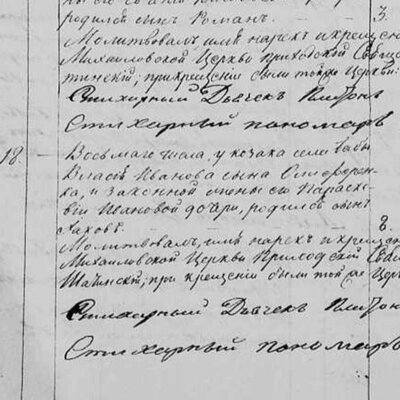 родился сынъ Романъ. 3.
Молитвовалъ, имя нарекъ и крещение
Михайловской Церкви приходской Священ
тинский, при крещении были той же Церкви:
Стихарный Дьячекъ Платонъ
Стихарный пономаръ
18. Восьмаго числа, у козака села Бабы
Власа Иванова сына Онофрієн
ка, и законной жены его Параске
віи Ивановой дочери, родился сынъ
Іаковъ. 8.
Молитвовалъ, имя нарекъ и крещение
Михайловской Церкви Приходской Свящ
при крещении были той же Церк
Стихарный Дьячекъ Платон
Стихарный пономаръ